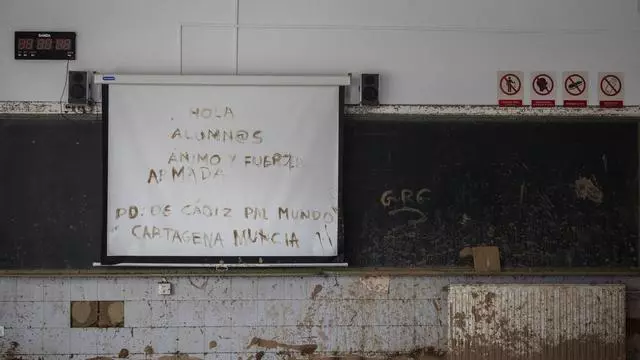 HOLA
ALUMN@S
ÁNIMO Y FUERZA
ARMADA
PD: DE CÁDIZ PAL MUNDO
CARTAGENA MUNCIA
GRG